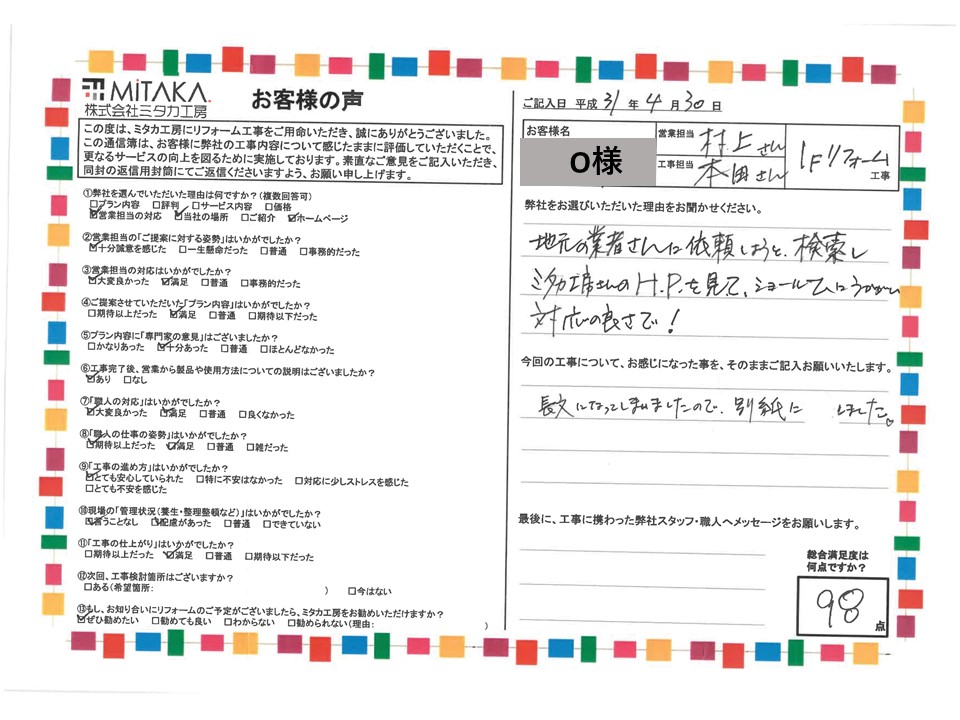 MiTAKA
株式会社ミタカ工房
お客様の声
この度は、ミタカ工房にリフォーム工事をご用命いただき、誠にありがとうございました。
この通信簿は、お客様に弊社の工事内容について感じたままに評価していただくことで、
更なるサービスの向上を図るために実施しております。素直なご意見をご記入いただき、
同封の返信用封筒にてご返信くださいますよう、お願い申し上げます。
①弊社を選んでいただいた理由は何ですか?(複数回答可)
□プラン内容 □評判 □サービス内容 □価格
☑営業担当の対応 ☑当社の場所 □ご紹介 ☑ホームページ
②営業担当の「ご提案に対する姿勢」はいかがでしたか?
☑十分誠意を感じた □一生懸命だった □普通 □事務的だった
③営業担当の対応はいかがでしたか?
☑大変良かった ☑満足 □普通 □事務的だった
④ご提案させていただいた「プラン内容」はいかがでしたか?
□期待以上だった ☑満足 □普通 □期待以下だった
⑤プラン内容に「専門家の意見」はございましたか?
□かなりあった ☑十分あった □普通 □ほとんどなかった
⑥工事完了後、営業から製品や使用方法についての説明はございましたか?
☑あり □なし
⑦「職人の対応」はいかがでしたか?
☑大変良かった ☑満足 □普通 □良くなかった
⑧「職人の仕事の姿勢」はいかがでしたか?
☑期待以上だった ☑満足 □普通 □雑だった
⑨「工事の進め方」はいかがでしたか?
☑とても安心していられた □特に不安はなかった □対応に少しストレスを感じた
□とても不安を感じた
⑩現場の「管理状況(養生・整理整頓など)」はいかがでしたか?
☑言うことなし ☑配慮があった □普通 □できていない
⑪「工事の仕上がり」はいかがでしたか?
□期待以上だった ☑満足 □普通 □期待以下だった
⑫次回、工事検討箇所はございますか?
□ある(希望箇所: ) □今はない
⑬もし、お知り合いにリフォームのご予定がございましたら、ミタカ工房をお勧めいただけますか?
☑ぜひ勧めたい □勧めても良い □わからない □勧められない(理由: )
ご記入日 平成 31 年 4 月 30 日
お客様名
O様
営業担当 村上さん
工事担当 本田さん
1Fリフォーム 工事
弊社をお選びいただいた理由をお聞かせください。
地元の業者さんに依頼しようと、検索し
ミタカ工房さんのH.P.を見て、ショールームにうかがい
対応の良さで!
今回の工事について、お感じになった事を、そのままご記入お願いいたします。
長文になってしまいましたので、別紙に しました。
最後に、工事に携わった弊社スタッフ・職人へメッセージをお願いします。
総合満足度は
何点ですか?
98 点